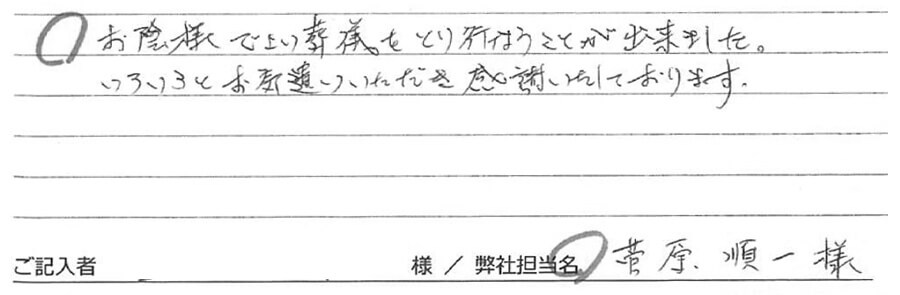 お陰様でよい葬儀をとり行なうことが出来ました。
いろいろとお気遣いいただき感謝いたしております.
ご記入者 様 / 弊社担当名 菅原 順一様